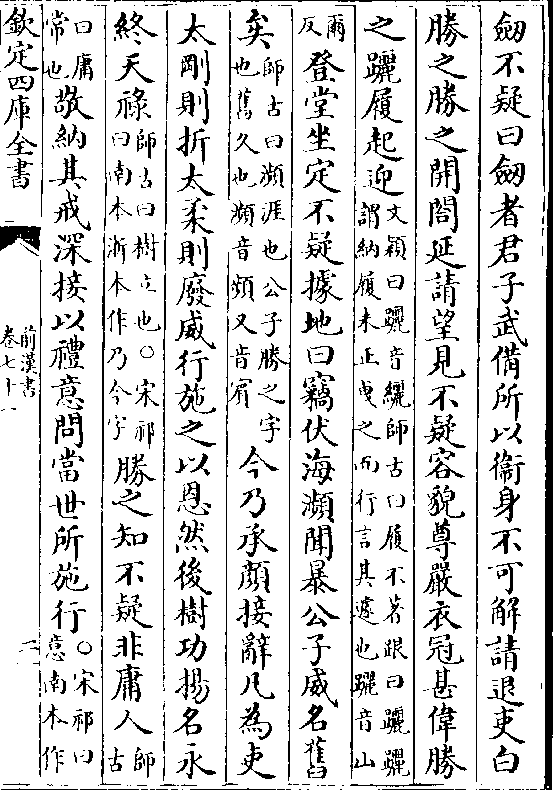 劔不疑曰劔者君子武備所以衞身不可解請退吏白
勝之勝之開閤延請望見不疑容貌尊嚴衣冠甚偉勝
之躧履起迎文穎曰躧音纚師古曰履不著跟曰躧躧謂納履未正曳之而行言其遽也躧音山
爾反登堂坐定不疑據地曰竊伏海瀕聞暴公子威名舊
矣師古曰瀕涯也公子勝之字也舊久也瀕音頻又音賔今乃承顔接辭凡為吏
太剛則折太柔則廢威行施之以恩然後樹功揚名永
終天祿師古曰樹立也○宋祁曰南本浙本作乃今字勝之知不疑非庸人師古
曰庸常也敬納其戒深接以禮意問當世所施行○宋祁曰意南本作
欽定四庫全書
前漢書
卷七十一
二